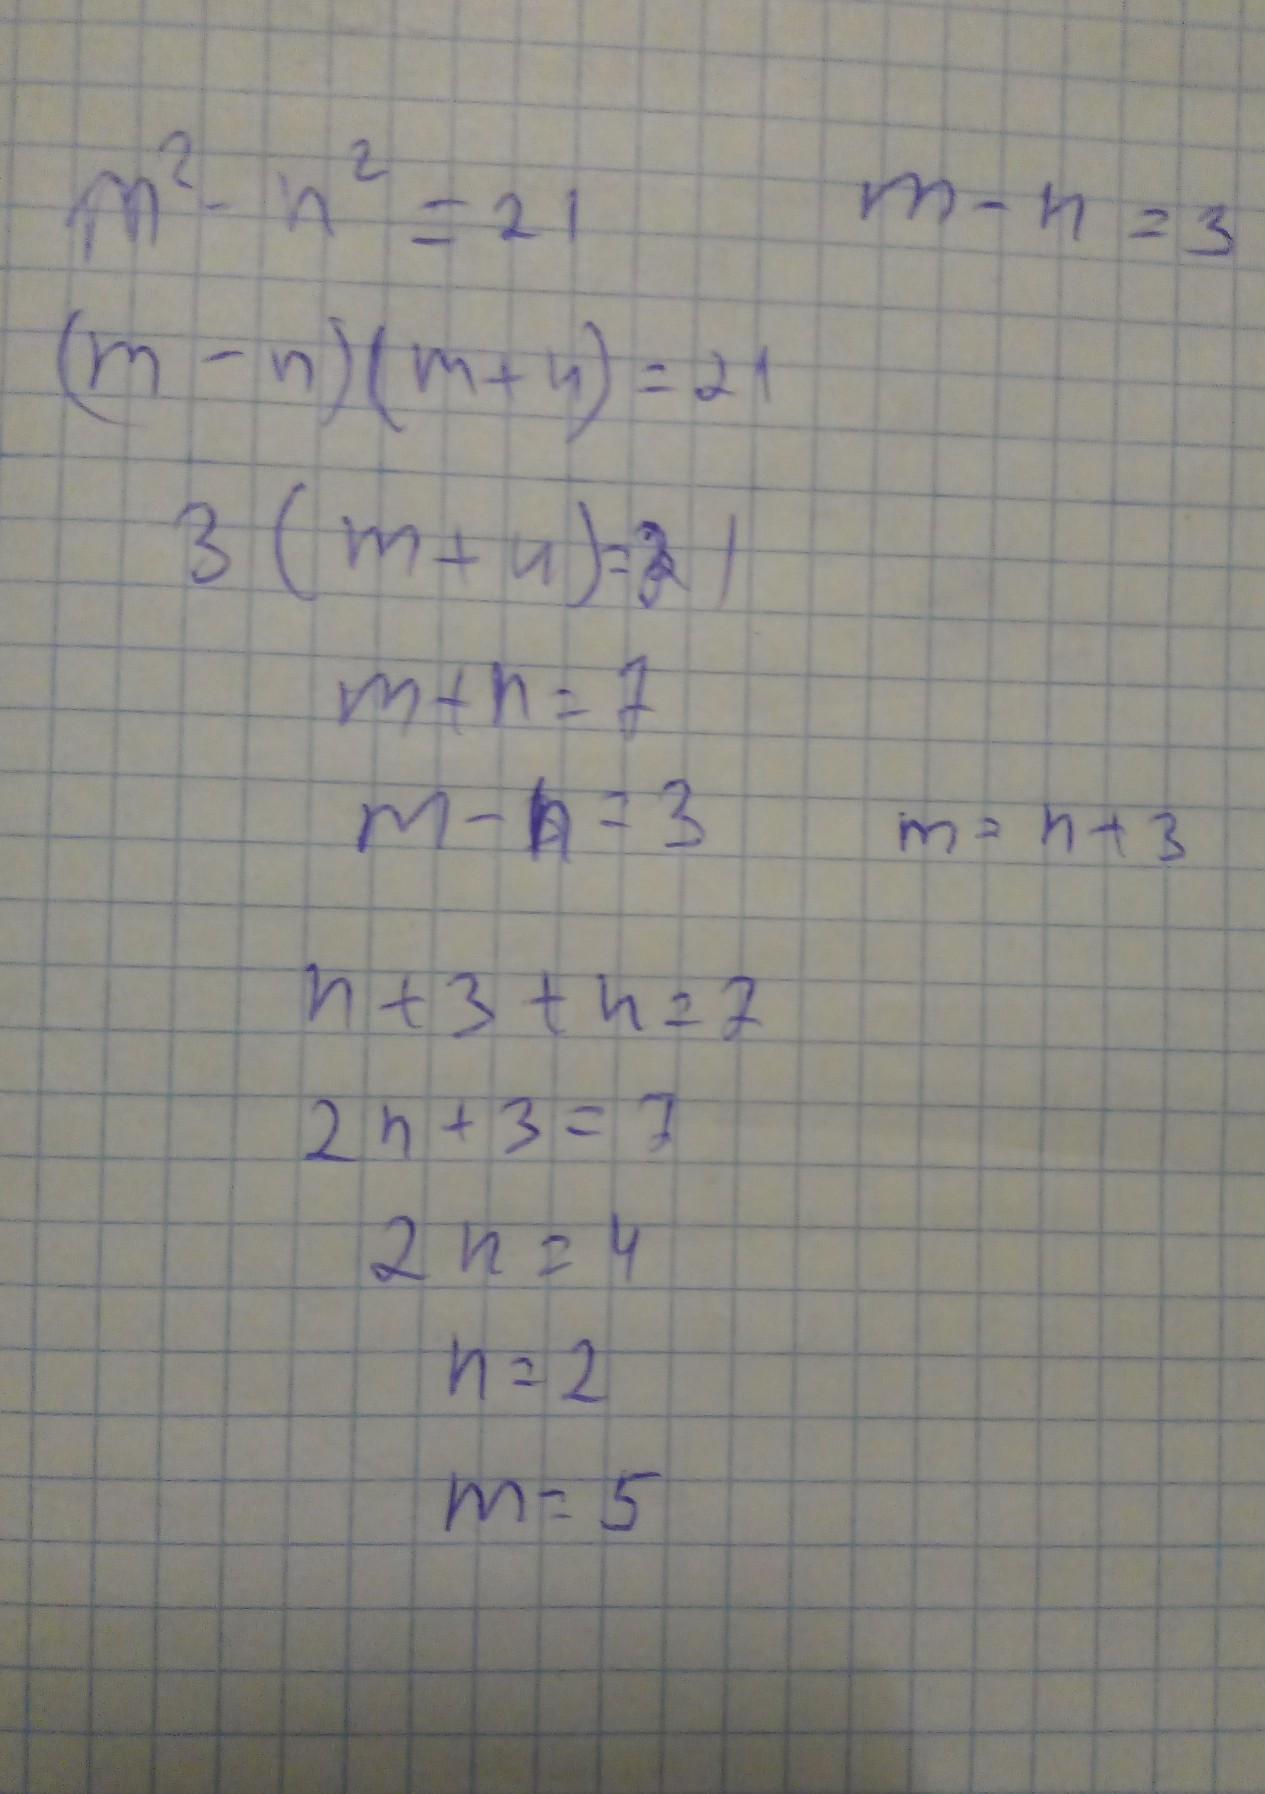 m² - n² = 21 m - n = 3
(m - n)(m + n) = 21
3 (m + n) = 21
m + n = 7
m - n = 3 m = n + 3
n + 3 + n = 7
2n + 3 = 7
2n = 4
n = 2
m = 5